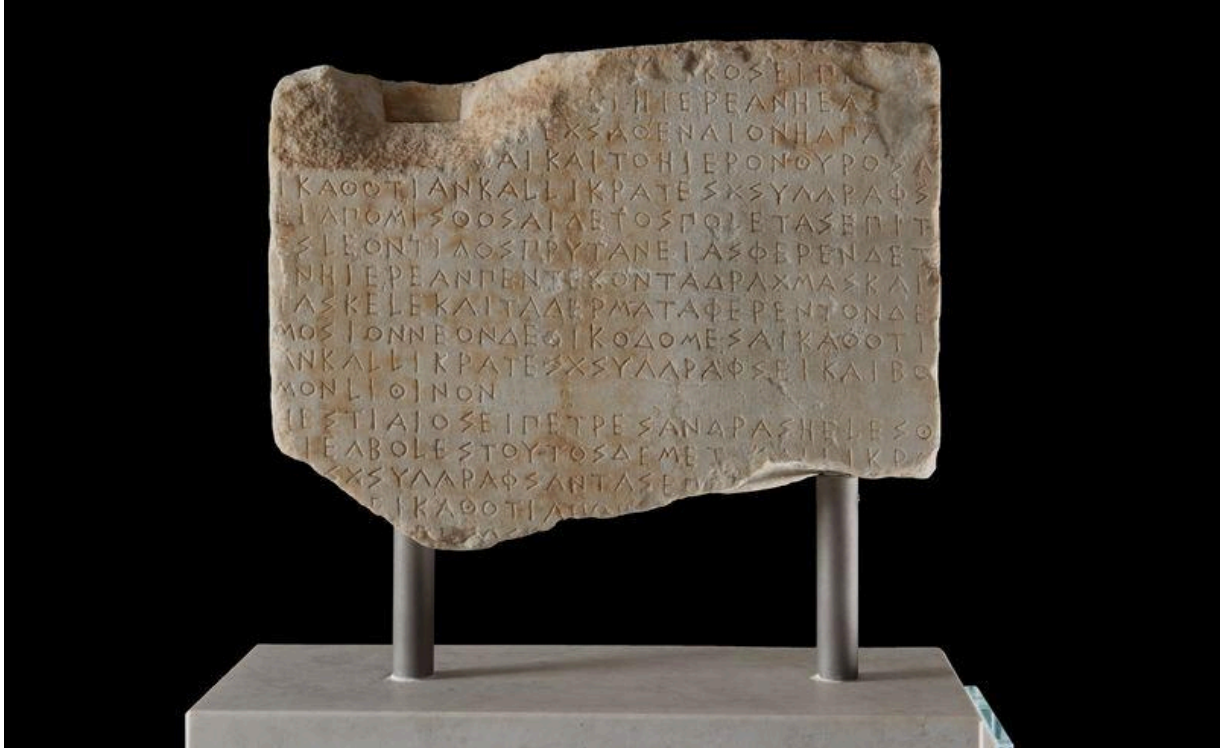 ΚΟΣΕΙΠΕ
ΗΙΕΡΕΑΝΗΕΑ
ΕΧΣΑΘΕΝΑΙΟΝΗΑΠΑ
ΑΙΚΑΙΤΟΗΙΕΡΟΝΘΥΡΟΣΑ
ΙΚΑΘΟΤΙΑΝΚΑΛΛΙΚΡΑΤΕΣΧΣΥΓΓΡΑΦΣ
ΕΙΑΠΟΜΙΣΘΟΣΑΙΔΕΤΟΣΠΟΛΕΤΑΣΕΠΙΤ
ΕΣΛΕΟΝΤΙΔΟΣΠΡΥΤΑΝΕΙΑΣΦΕΡΕΝΔΕΤ
ΕΝΗΙΕΡΕΑΝΠΕΝΤΕΚΟΝΤΑΔΡΑΧΜΑΣΚΑΙ
ΤΑΣΚΕΛΕΚΑΙΤΑΔΕΡΜΑΤΑΦΕΡΕΝΤΟΝΔΕ
ΜΟΣΙΟΝΝΕΟΝΔΕΟΙΚΟΔΟΜΕΣΑΙΚΑΘΟΤΙ
ΑΝΚΑΛΛΙΚΡΑΤΕΣΧΣΥΓΓΡΑΦΣΕΙΚΑΙΒΟ
ΜΟΝΛΙΘΙΝΟΝ
ΗΕΣΤΙΑΙΟΣΕΙΠΕΤΡΕΣΑΝΔΡΑΣΗΕΛΕΣΘ
ΙΕΓΒΟΛΕΣΤΟΥΤΟΣΔΕΜΕΤ ΛΙΚΡ
ΣΧΣΥΓΓΡΑΦΣΑΝΤΑΣΕΠ
ΕΙΚΑΘΟΤΙΑΠ